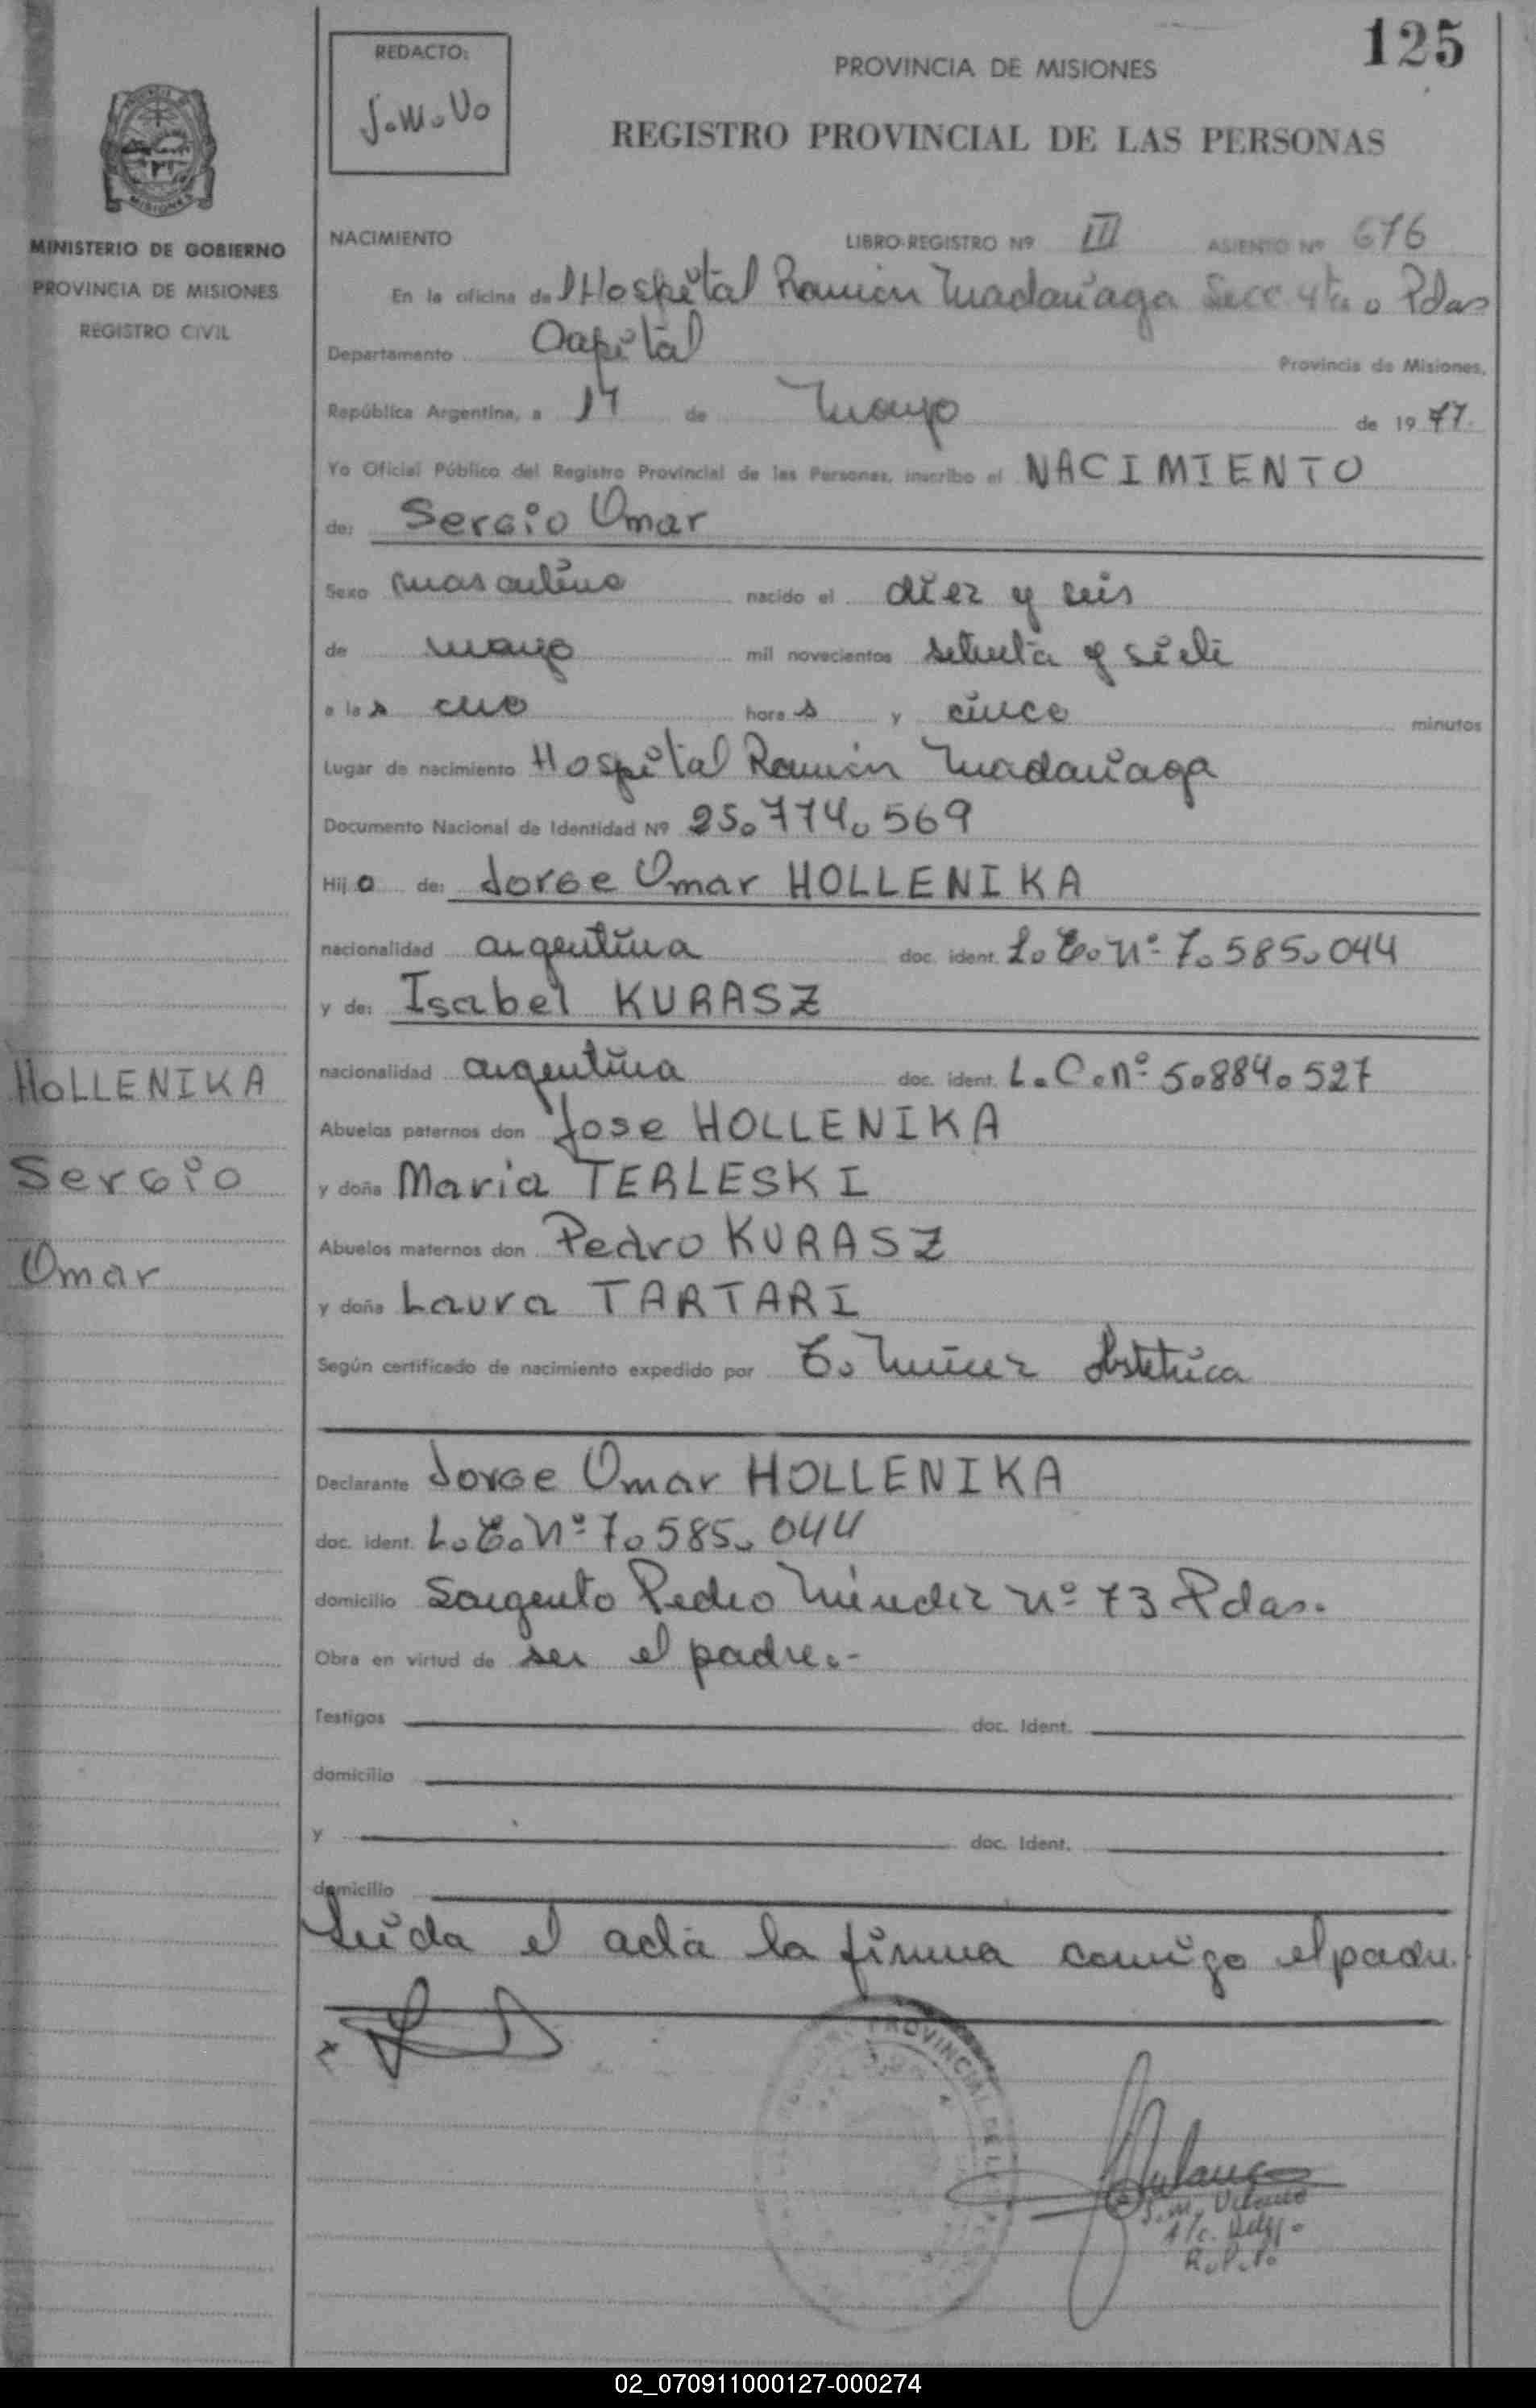 125
REDACTO:
J.M.V.
PROVINCIA DE MISIONES
REGISTRO PROVINCIAL DE LAS PERSONAS
MINISTERIO DE GOBIERNO
PROVINCIA DE MISIONES
REGISTRO CIVIL
NACIMIENTO LIBRO-REGISTRO Nº III ASIENTO Nº 676
En la oficina del Hospital Ramón Madariaga Secc 4ta. Pdas
Departamento Capital Provincia de Misiones,
República Argentina, a 17 de Mayo de 1977.
Yo Oficial Público del Registro Provincial de las Personas, inscribo el NACIMIENTO
de: Sergio Omar
Sexo masculino nacido el diez y seis
de mayo mil novecientos setenta y siete
a las hora s y cinco minutos
Lugar de nacimiento Hospital Ramón Madariaga
Documento Nacional de Identidad Nº 25.774.569
Hijo de: Jorge Omar HOLLENIKA
nacionalidad argentina doc. ident. L.E.Nº 7.585.044
y de: Isabel KURASZ
nacionalidad argentina doc. ident. L.C.nº 5.884.527
Abuelos paternos don Jose HOLLENIKA
y doña Maria TERLESKI
Abuelos maternos don Pedro KURASZ
y doña Laura TARTARI
Según certificado de nacimiento expedido por obstetrica
HOLLENIKA
Sergio
Omar
Declarante Jorge Omar HOLLENIKA
doc. ident. L.E.Nº 7.585.044
domicilio Sargento Pedro Méndez nº 73 Pdas.
Obra en virtud de ser el padre.-
Testigos doc. Ident.
domicilio
y doc. Ident.
domicilio
Leida el acta la firma comigo el padre.
PROVINCIAL DE
R.P.P.
02_070911000127-000274